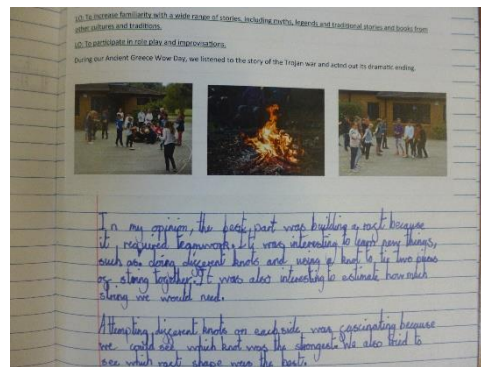 LO: To increase familiarity with a wide range of stories, including myths, legends and traditional stories and books from
other cultures and traditions.
LO: To participate in role play and improvisations.
During our Ancient Greece Wow Day, we listened to the story of the Trojan war and acted out its dramatic ending.
In my opinion, the best part was building a raft because
it required teamwork. It was interesting to learn new things,
such as: doing different knots and using a knot to tie two pieces
of string together. It was also interesting to estimate how much
string we would need.
Attempting different knots on each side was fascinating because
we could see which knot was the strongest. We also tried to
see which raft shape was the best.